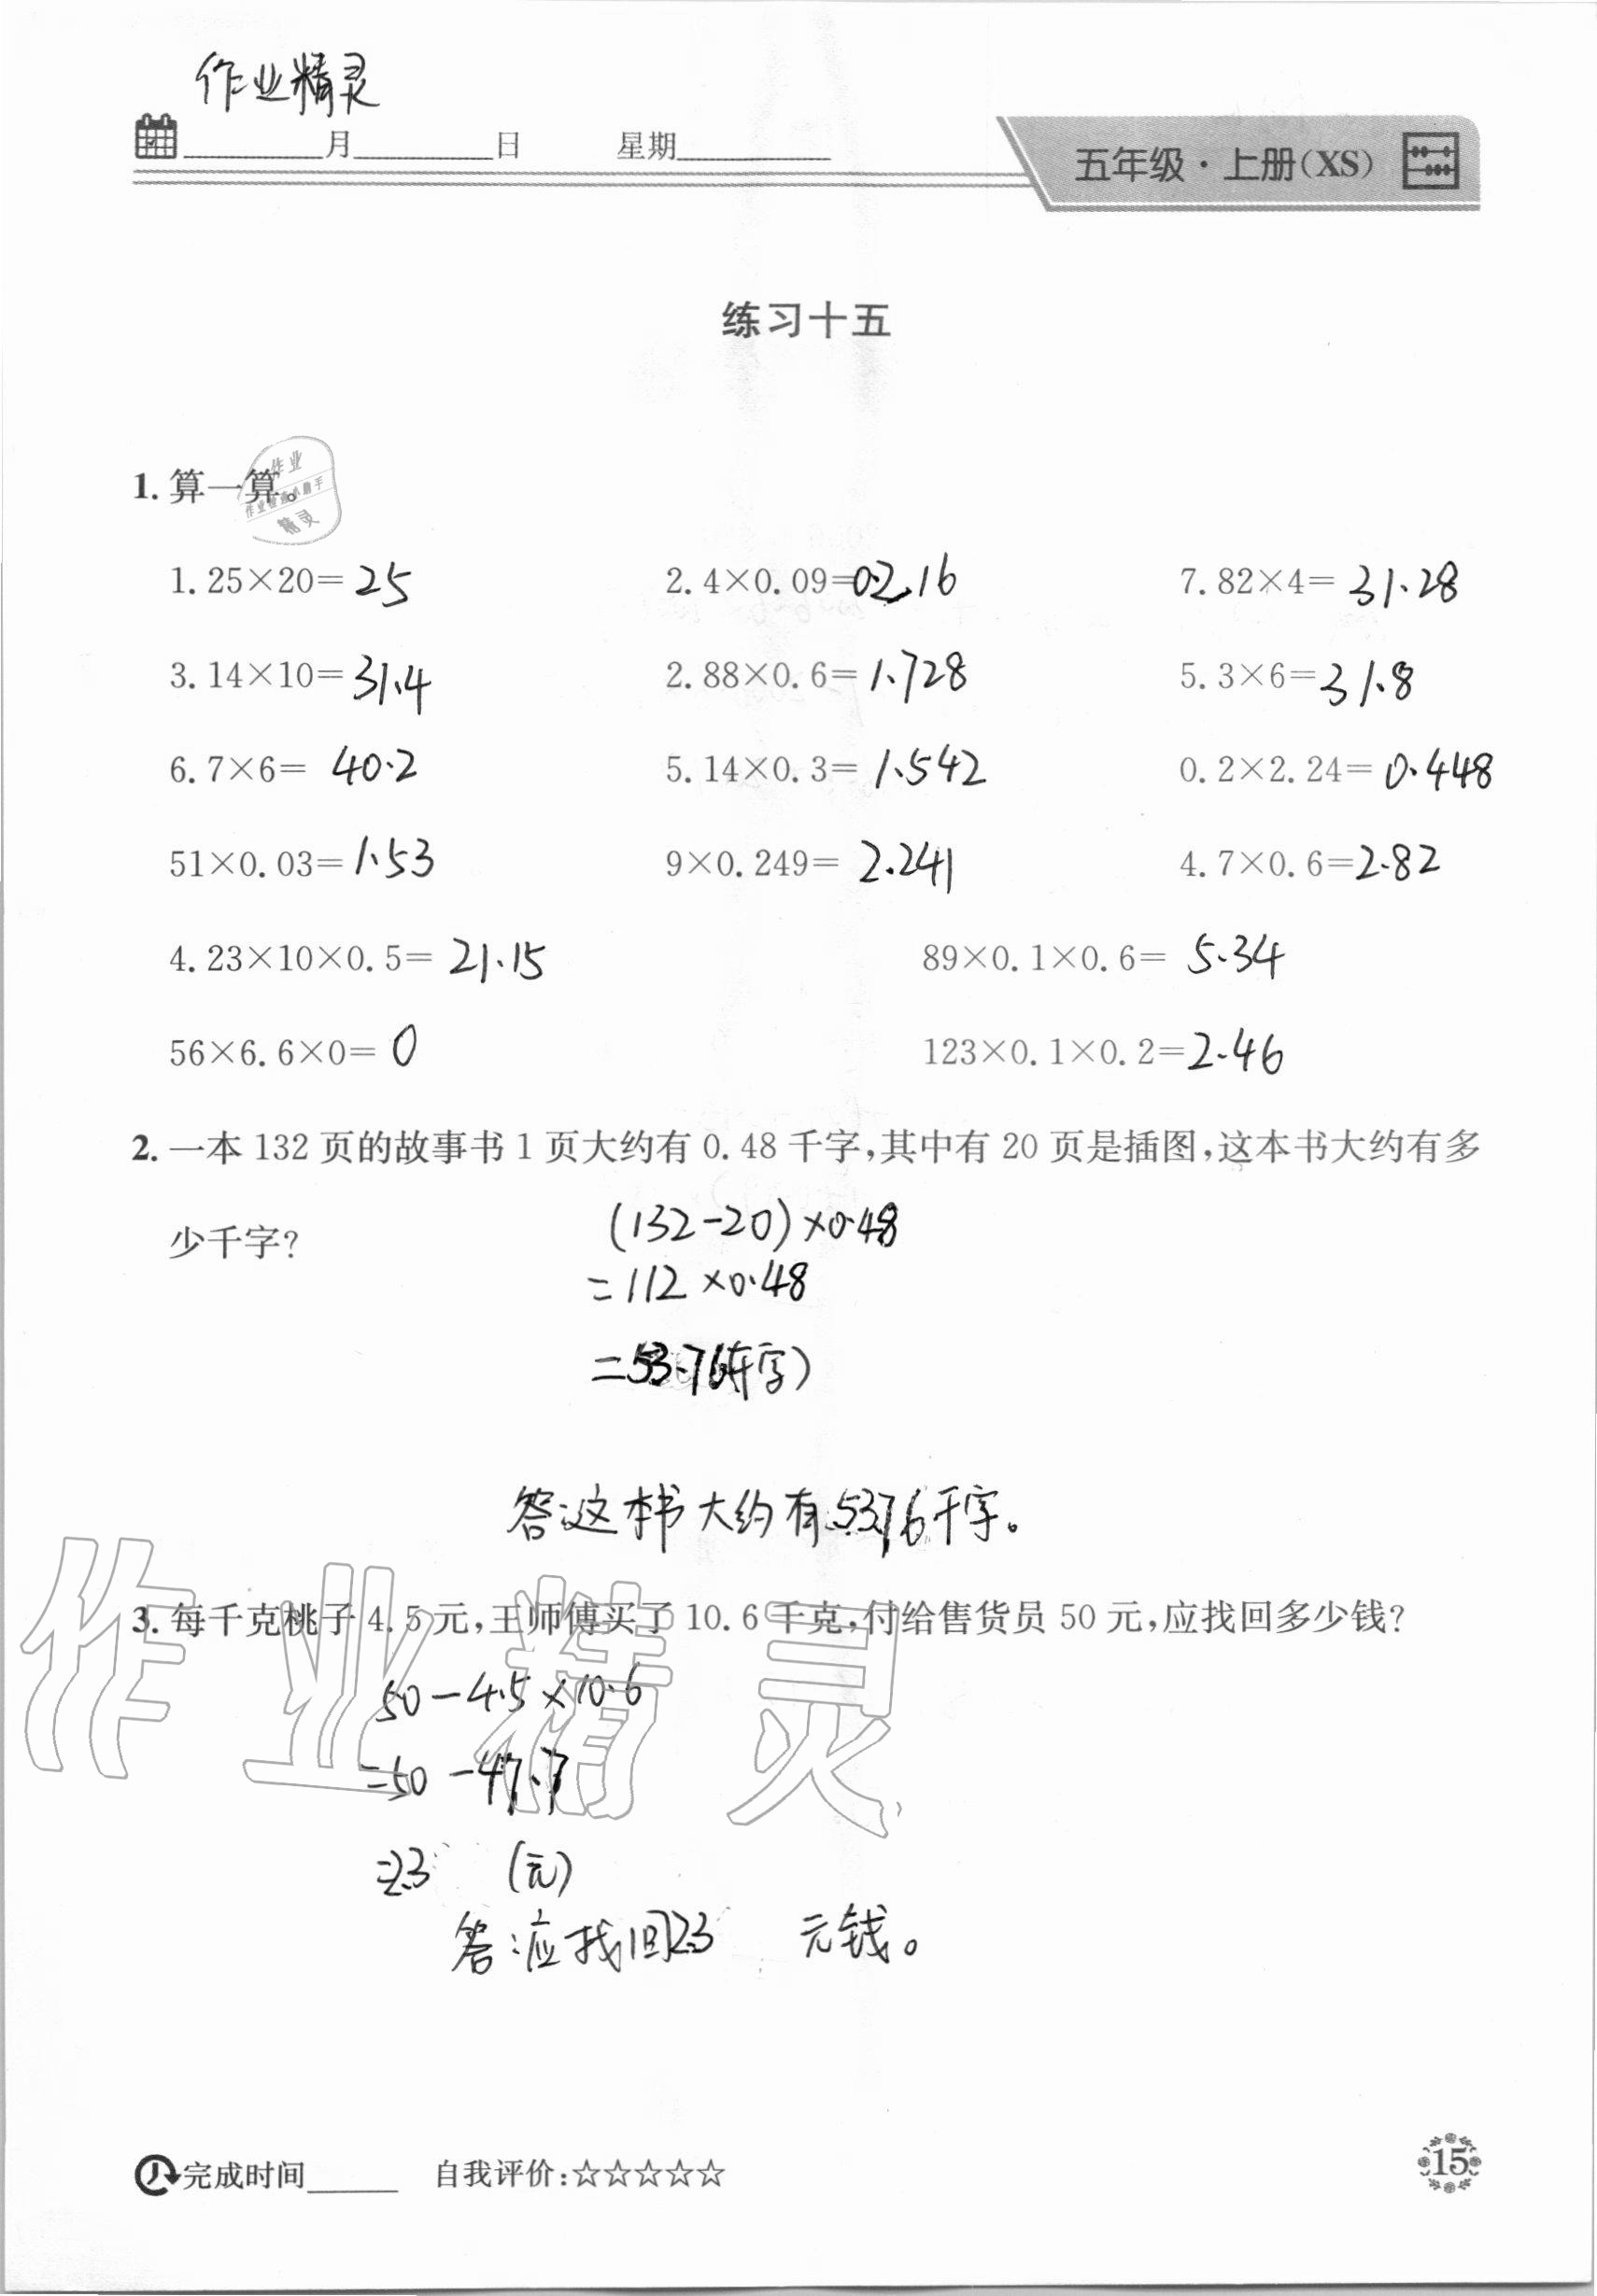 作业精灵
月 日 星期
五年级·上册(XS)
练习十五
1. 算一算。
作业
精灵
1.25×20= 25 2.4×0.09=02.16 7.82×4= 31.28
3.14×10= 31.4 2.88×0.6= 1.728 5.3×6= 31.8
6.7×6= 40.2 5.14×0.3= 1.542 0.2×2.24= 0.448
51×0.03= 1.53 9×0.249= 2.241 4.7×0.6= 2.82
4.23×10×0.5= 21.15 89×0.1×0.6= 5.34
56×6.6×0= 0 123×0.1×0.2= 2.46
2. 一本 132 页的故事书 1 页大约有 0.48 千字,其中有 20 页是插图,这本书大约有多
少千字?
(132-20)×0.48
=112×0.48
=53.76(千字)
答:这本书大约有53.76千字。
3. 每千克桃子 4.5 元,王师傅买了 10.6 千克,付给售货员 50 元,应找回多少钱?
50-4.5×10.6
=50-47.7
=2.3 (元)
答:应找回2.3 元钱。
作业精灵
完成时间 自我评价:☆☆☆☆☆
15